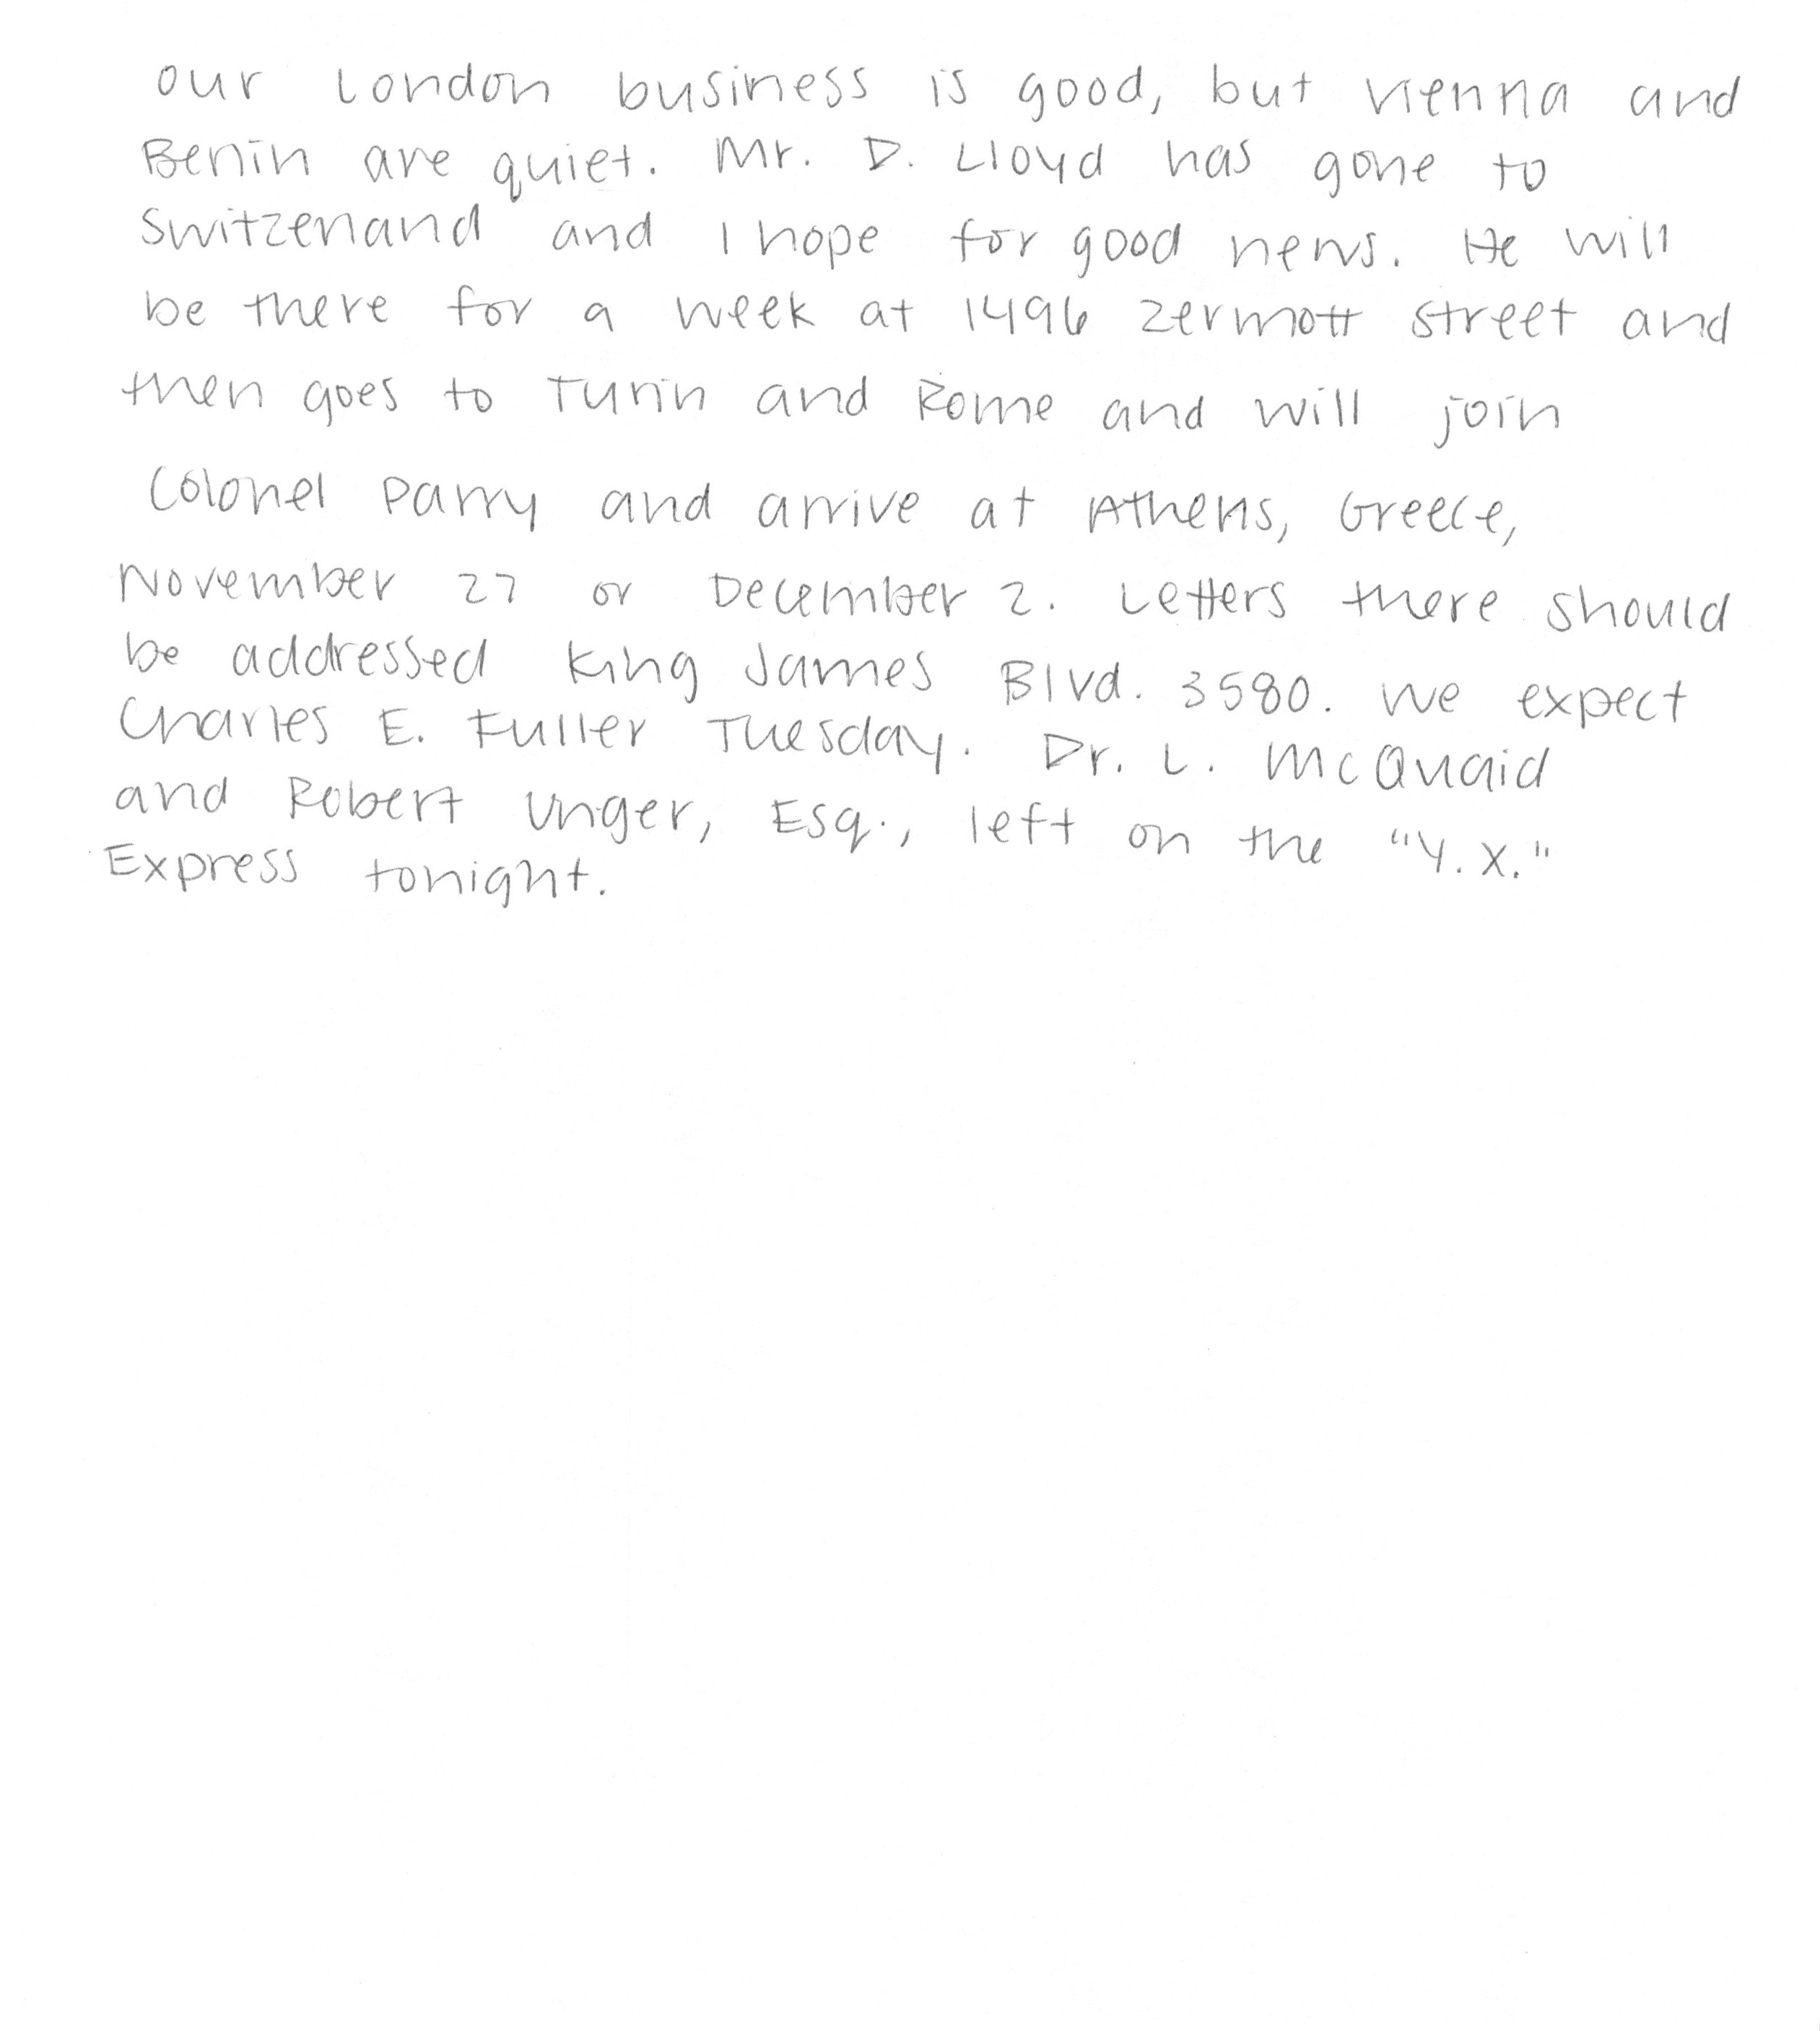 our London business is good, but Vienna and
Berlin are quiet. Mr. D. Lloyd has gone to
Switzerland and I hope for good news. He will
be there for a week at 1496 Zermott street and
then goes to Turin and Rome and will join
Colonel Parry and arrive at Athens, Greece,
November 27 or December 2. Letters there should
be addressed King James Blvd. 3580. We expect
Charles E. Fuller Tuesday. Dr. L. McQuaid
and Robert Unger, Esq., left on the "Y.X."
Express tonight.